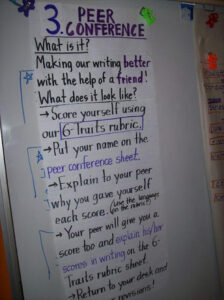 3. PEER
CONFERENCE
What is it?
Making our writing better
with the help of a friend!
What does it look like?
→ Score yourself using
our 6 Traits rubric.
→ Put your name on the
peer conference sheet.
→ Explain to your peer
why you gave yourself
each score. (use the language
on the rubric!)
→ Your peer will give you a
score too and explain his/her
scores in writing on the 6-
Traits rubric sheet.
→ Return to your desk and
revisions!